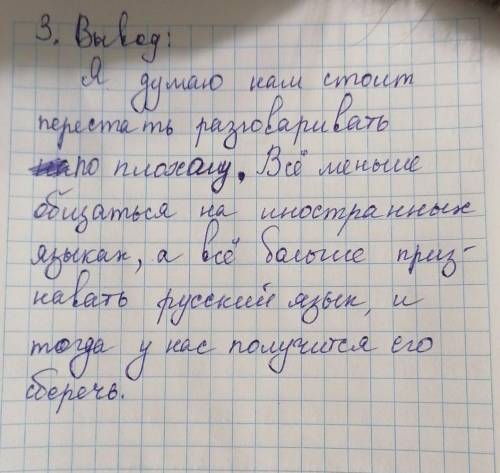 3. Вывод:
Я думаю нам стоит
перестать разговаривать
по плохому. Всё меньше
общаться на иностранных
языках, а всё больше приз-
навать русский язык, и
тогда у нас получится его
сберечь.